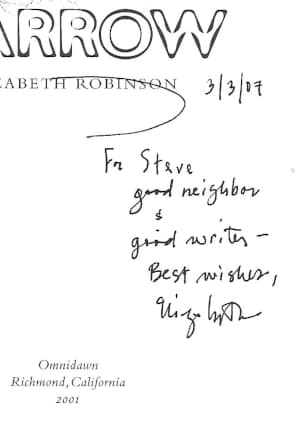 ARROW
ZABETH ROBINSON 3/3/07
For Steve
good neighbor
&
good writer –
Best wishes,
Elizabeth
Omnidawn
Richmond, California
2001